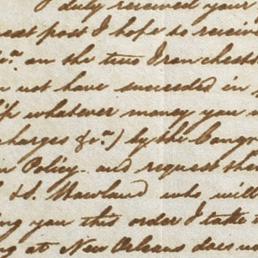 I duly received your
great post I hope to receive
on the two Tranchest
not have succeeded in
whatever money you
charges &c.) by the Congr
Policy and request the
& S. Mawland who will
ing you this order I take t
ng at New Orleans does no